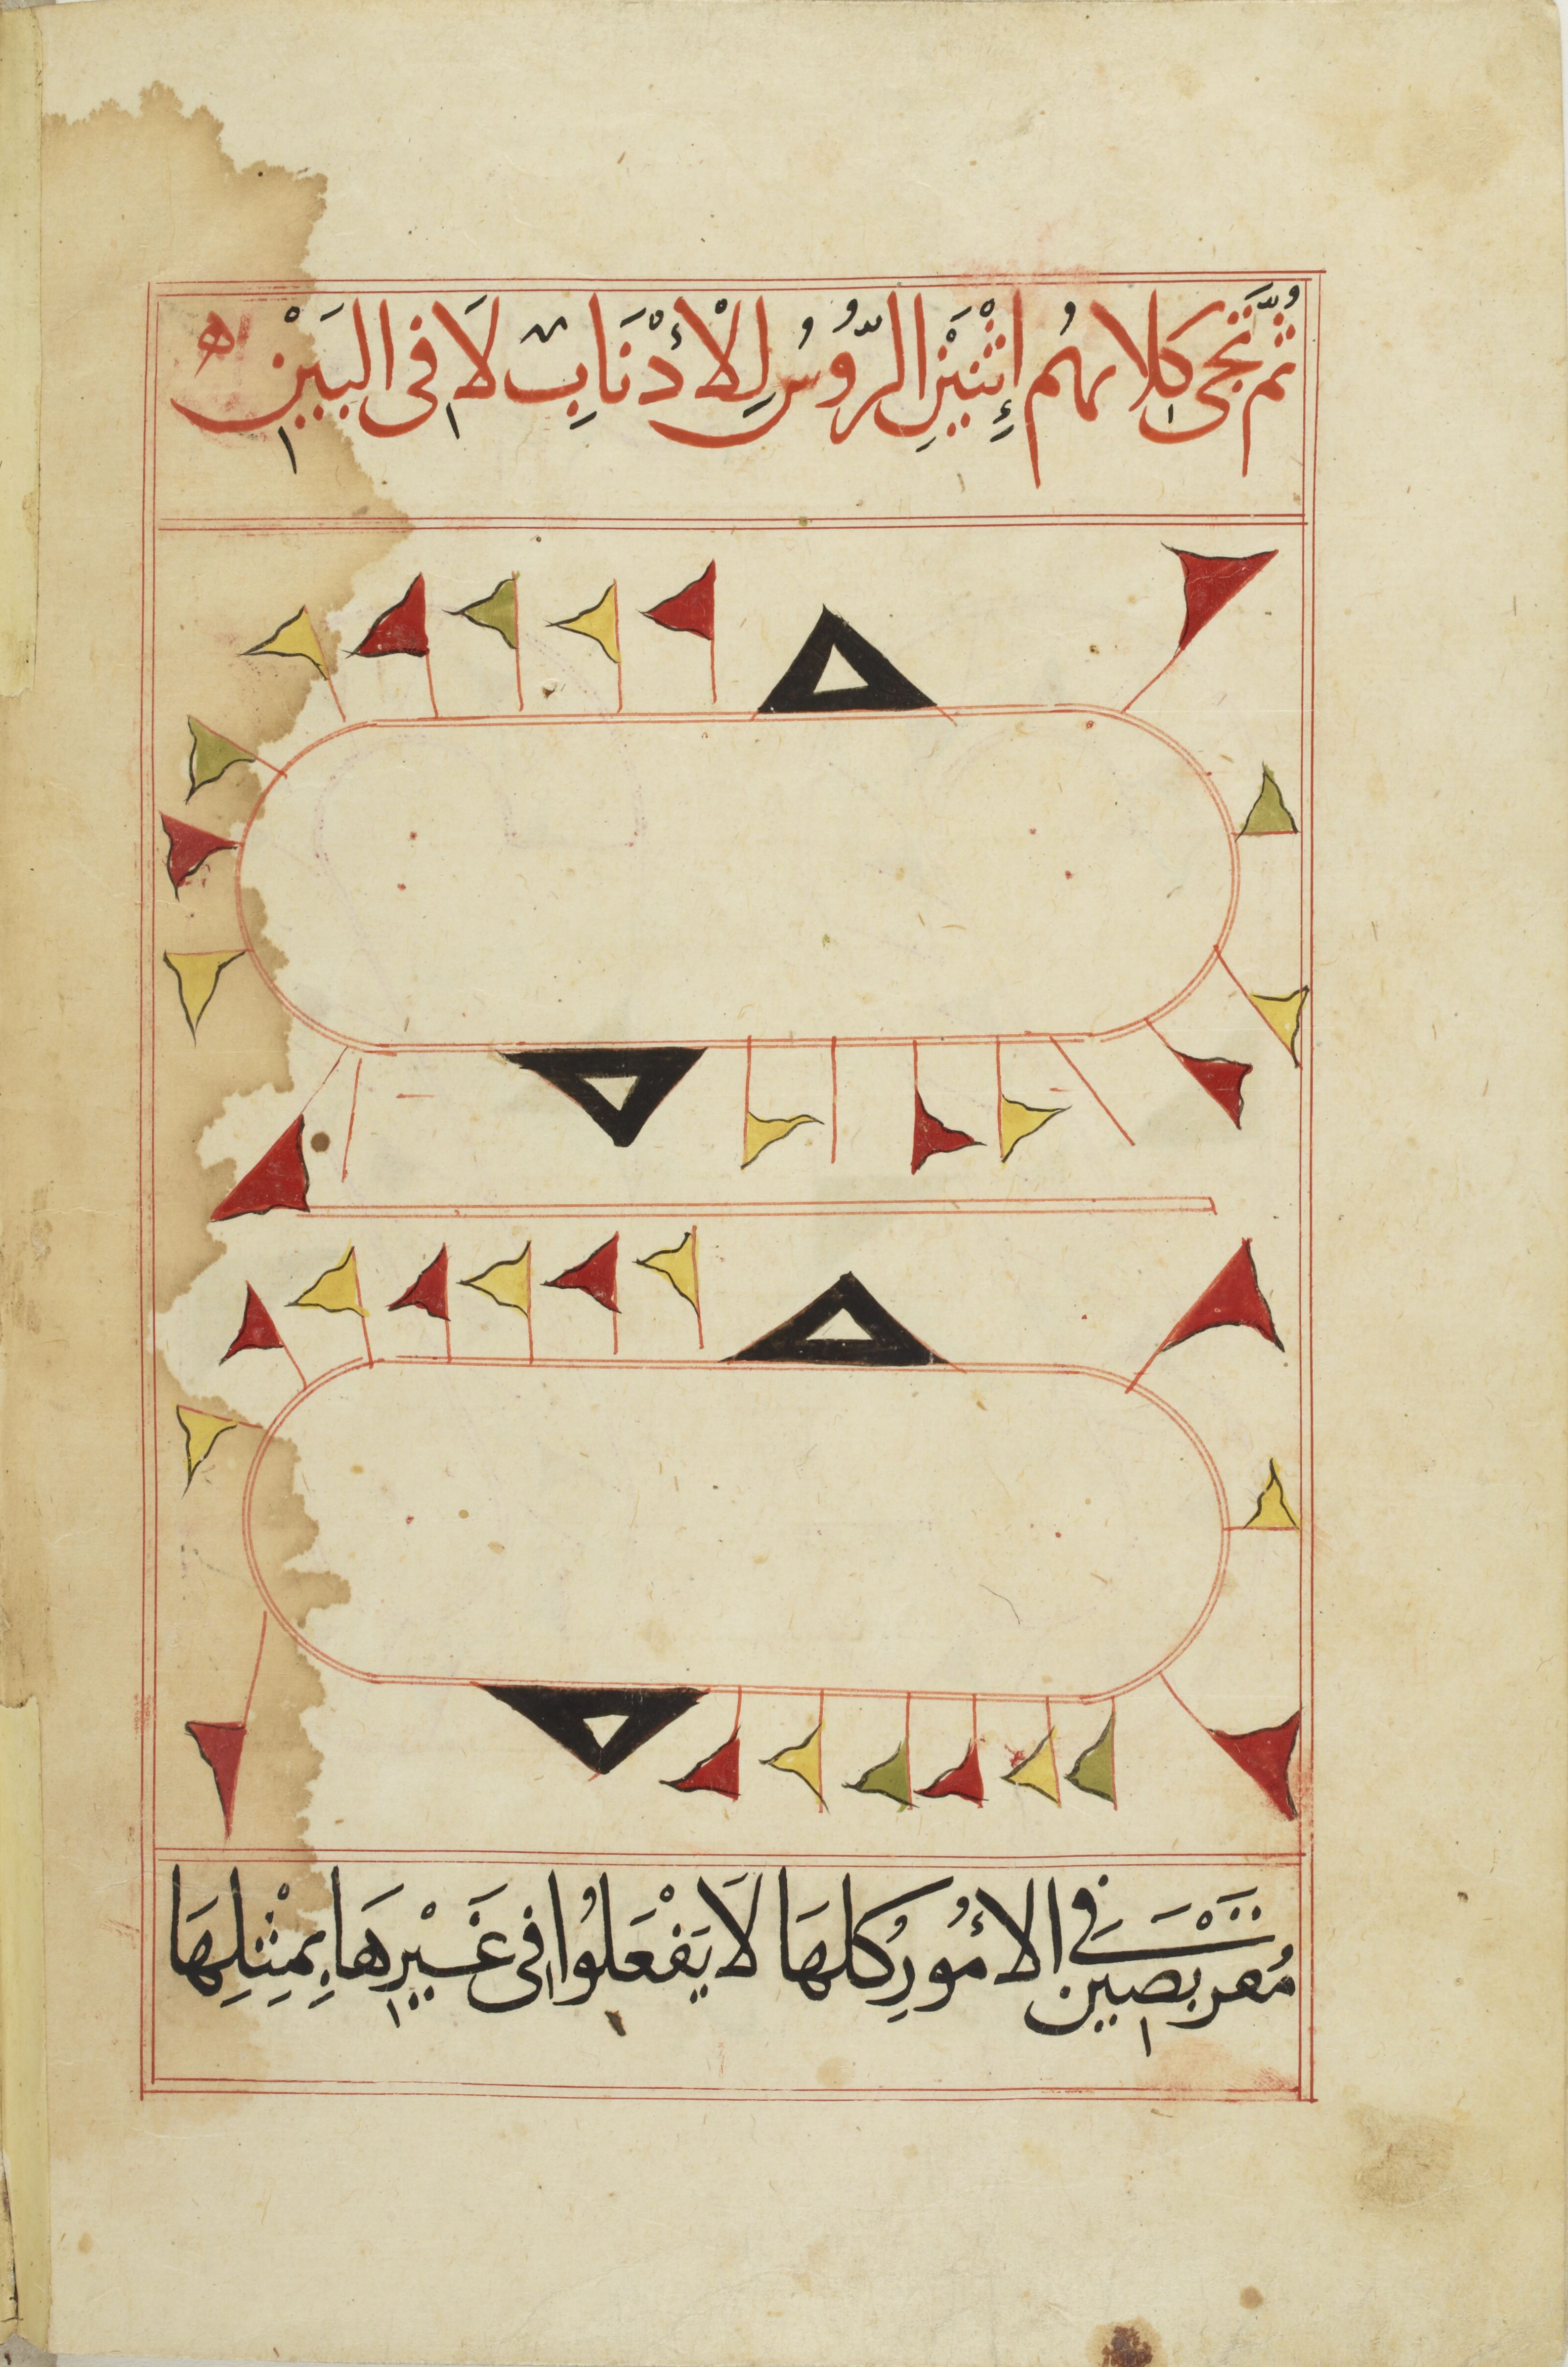 ثُمَّ نَجِى كِلاهُم إِثْنَيْنِ الرُّوُسُ لِلْأَدْنَابِ لَا فى البَيْنِ ه
مُعربصين تَتَسَنَّى فِي الأُمُورِ كُلهَا لَا يَفْعَلُوا فِى غَيْرِهَا بِمِثْلِهَا